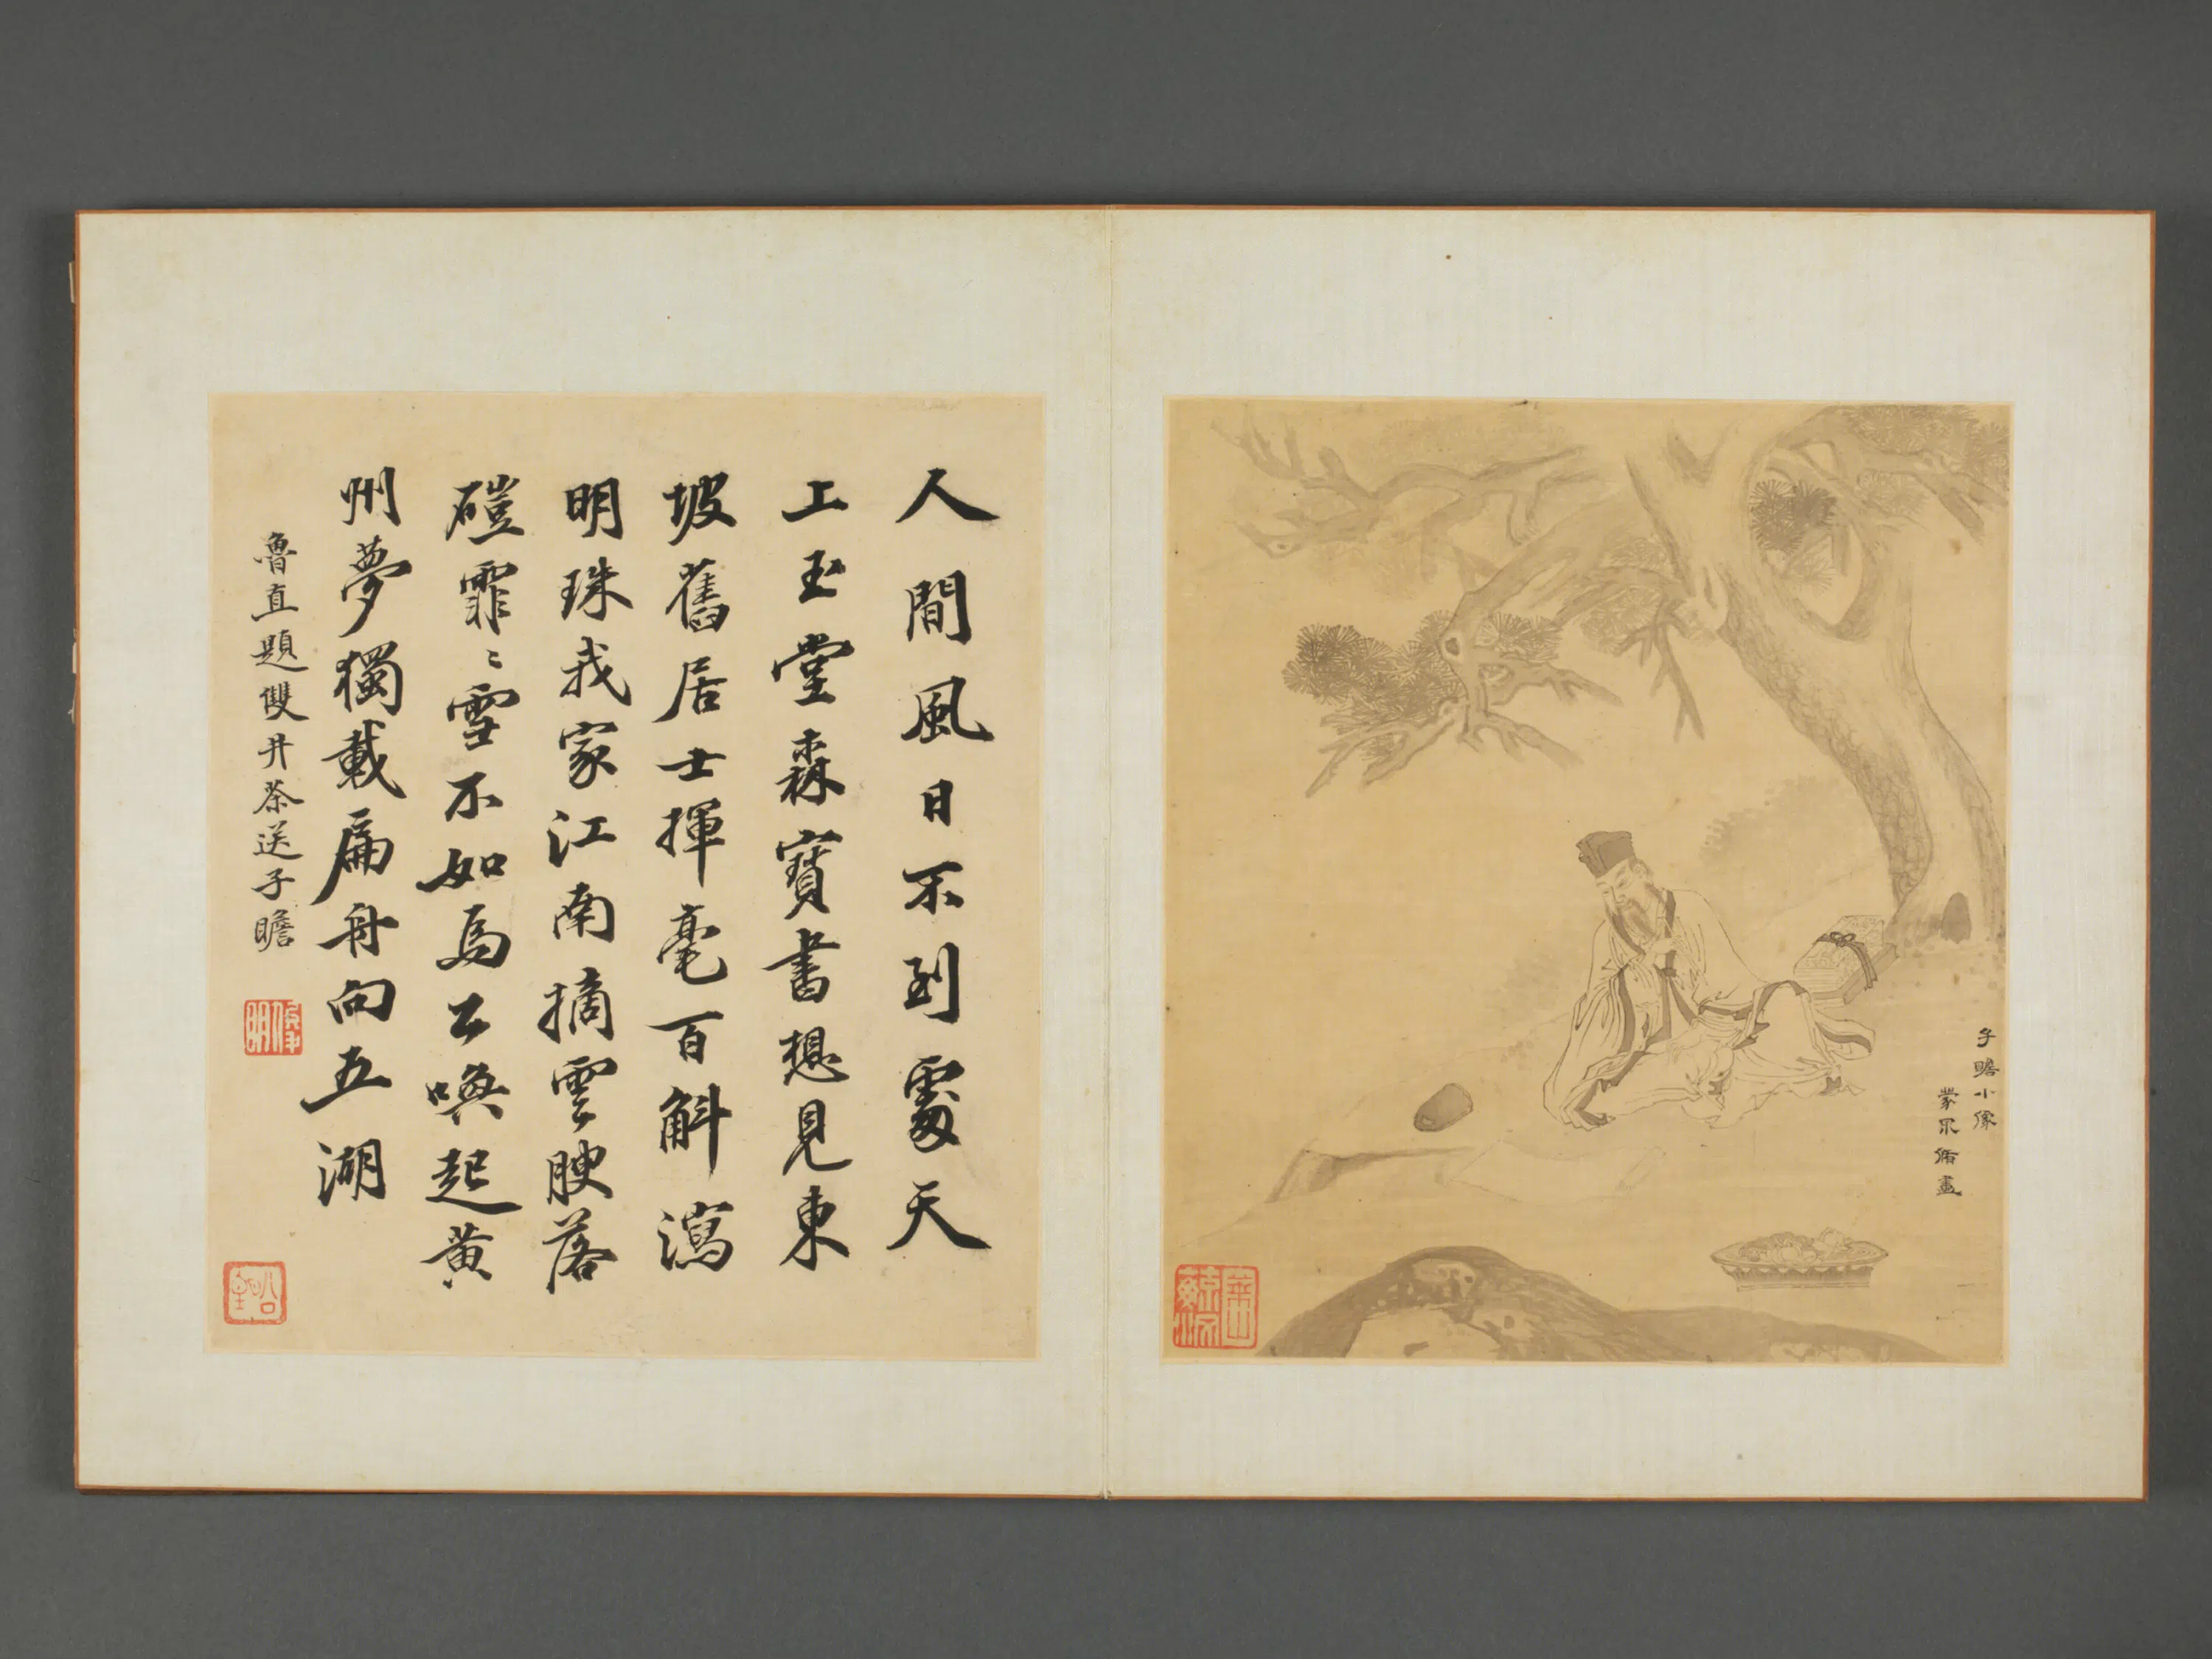 子瞻小像
蒙 脩畫
人間風日不到處天
上玉堂森寶書想見東
坡舊居士揮毫百斛瀉
明珠我家江南摘雲腴落
磑霏〻雪不如為公喚起黃
州夢獨載扁舟向五湖
魯直題雙井茶送子瞻
俊明